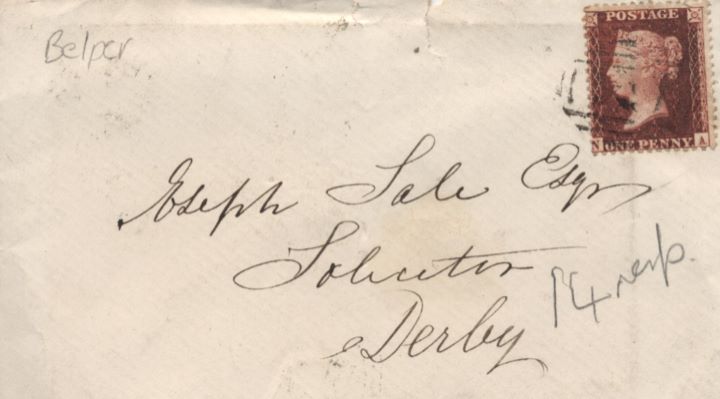 Belper
POSTAGE
N ONE PENNY A
Joseph Sale Esqr
Solicitor
Derby